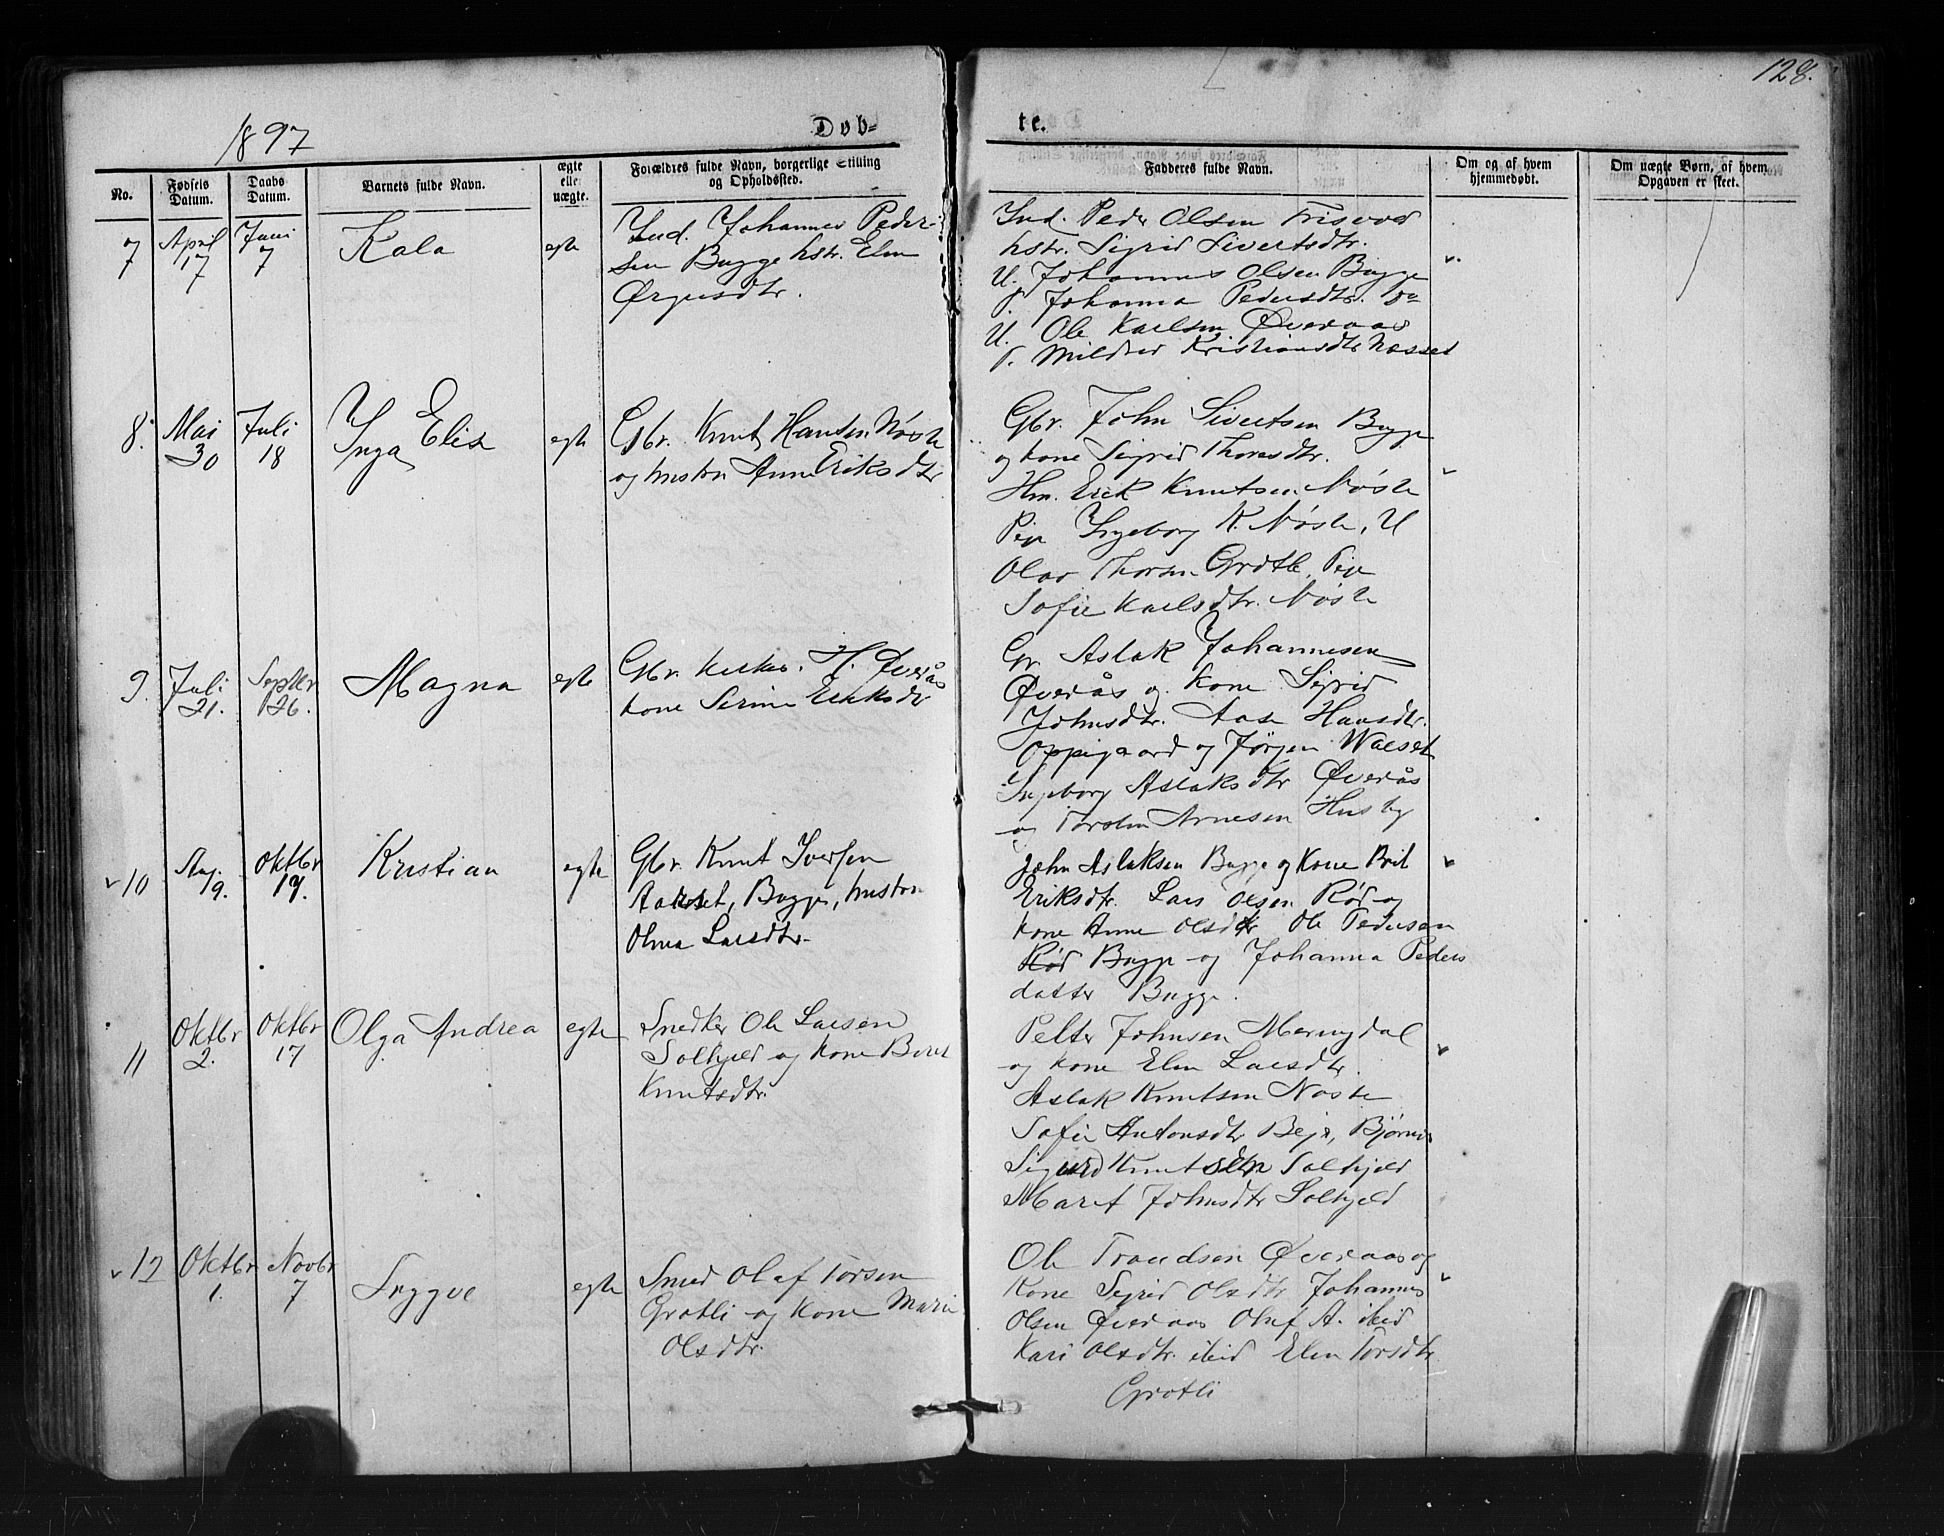 128.
1897
Døb=
te.
No.
Fødsels Datum.
Daabs Datum.
Barnets fulde Navn.
ægte elle uægte.
Forældres fulde Navn, borgerlige Stilling og Opholdssted.
Faddernes fulde Navn.
Om og af hvem hjemmedøbt.
Om uægte Børn, af hvem Opgaven er skeet.
7
April 17
Juni 7
Kala
egte
Ind. Johannes Peder-
sen Bugge hstr. Elen
Ind. Peder Olsen
hstr. Sigrid Sivertsdtr.
U. Johannes Olsen Bugge
P. Johanna Pedersdtr. Do
U. Ole Karlsen Øveraas
P. Mildrid Kristiansdtr Næsset
8.
Mai 30
Juli 18
Inga Elise
egte
Gbr. Knut Hansen Nøste
og hustru Anne Eriksdtr
Gbr. John Sivertsen Bugge
og kone Sigrid Thoresdtr.
Hm. Erik Knutsen Nøste
Pige Ingeborg K. Nøste, U
Olav Thorsen Grotle, Pige
Sofie Karlsdtr. Nøste
9.
Juli 21.
Septbr 26.
Magna
egte
Gbr. H. Øverås
kone Serine Eriksdtr
Gr Aslak Johannesen
Øverås og kone Sigrid
Johnsdtr. Aase Hansdtr.
Oppigaard og Jørgen
Ingeborg Aslaksdtr Øverås
og Torsten Arnesen Husby
10
Aug. 19.
Oktbr 17.
Kristian
egte
Gbr. Knut Iversen
Bugge, hustru
Olina Larsdtr.
John Aslaksen Bugge og Kone Brit
Eriksdtr. Lars Olsen Rød og
kone Anne Olsdtr Ole Pedersen
Rød Bugge og Johanna Peders
datter Bugge.
11
Oktbr 2.
Oktbr 17
Olga Andrea
egte
Snedker Ole Larsen
Solhjeld og kone Beret
Knutsdtr.
Petter Johnsen
og kone Elen Larsdtr.
Aslak Knutsen Nøste
Sofie Antonsdtr
Sigurd Knutsen Solhjeld
Maret Johnsdtr Solhjeld
12
Oktbr 1.
Novbr 7
Tryggve
egte
Smed Olaf Torsen
Grotli og kone Marie
Olsdtr.
Ole Trondsen Øveraas og
Kone Sigrid Olsdtr Johannes
Olsen Øveraas Oluf A. ibid
Kari Olsdtr. ibid Elen Torsdtr
Grotli